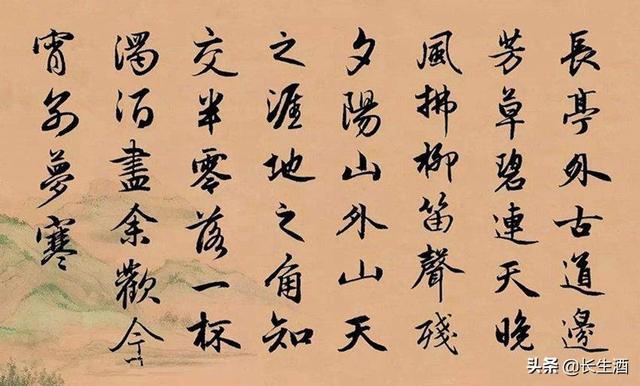 長亭外古道邊
芳草碧連天晚
風拂柳笛聲殘
夕陽山外山天
之涯地之角知
交半零落一杯
濁酒盡余歡今
宵别夢寒
头条 @长生酒